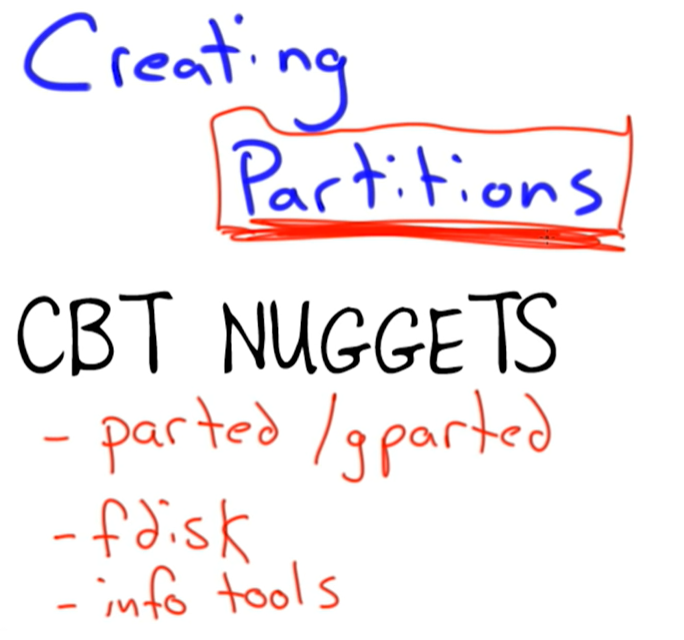 Creating
Partitions
CBT NUGGETS
- parted /gparted
- fdisk
- info tools